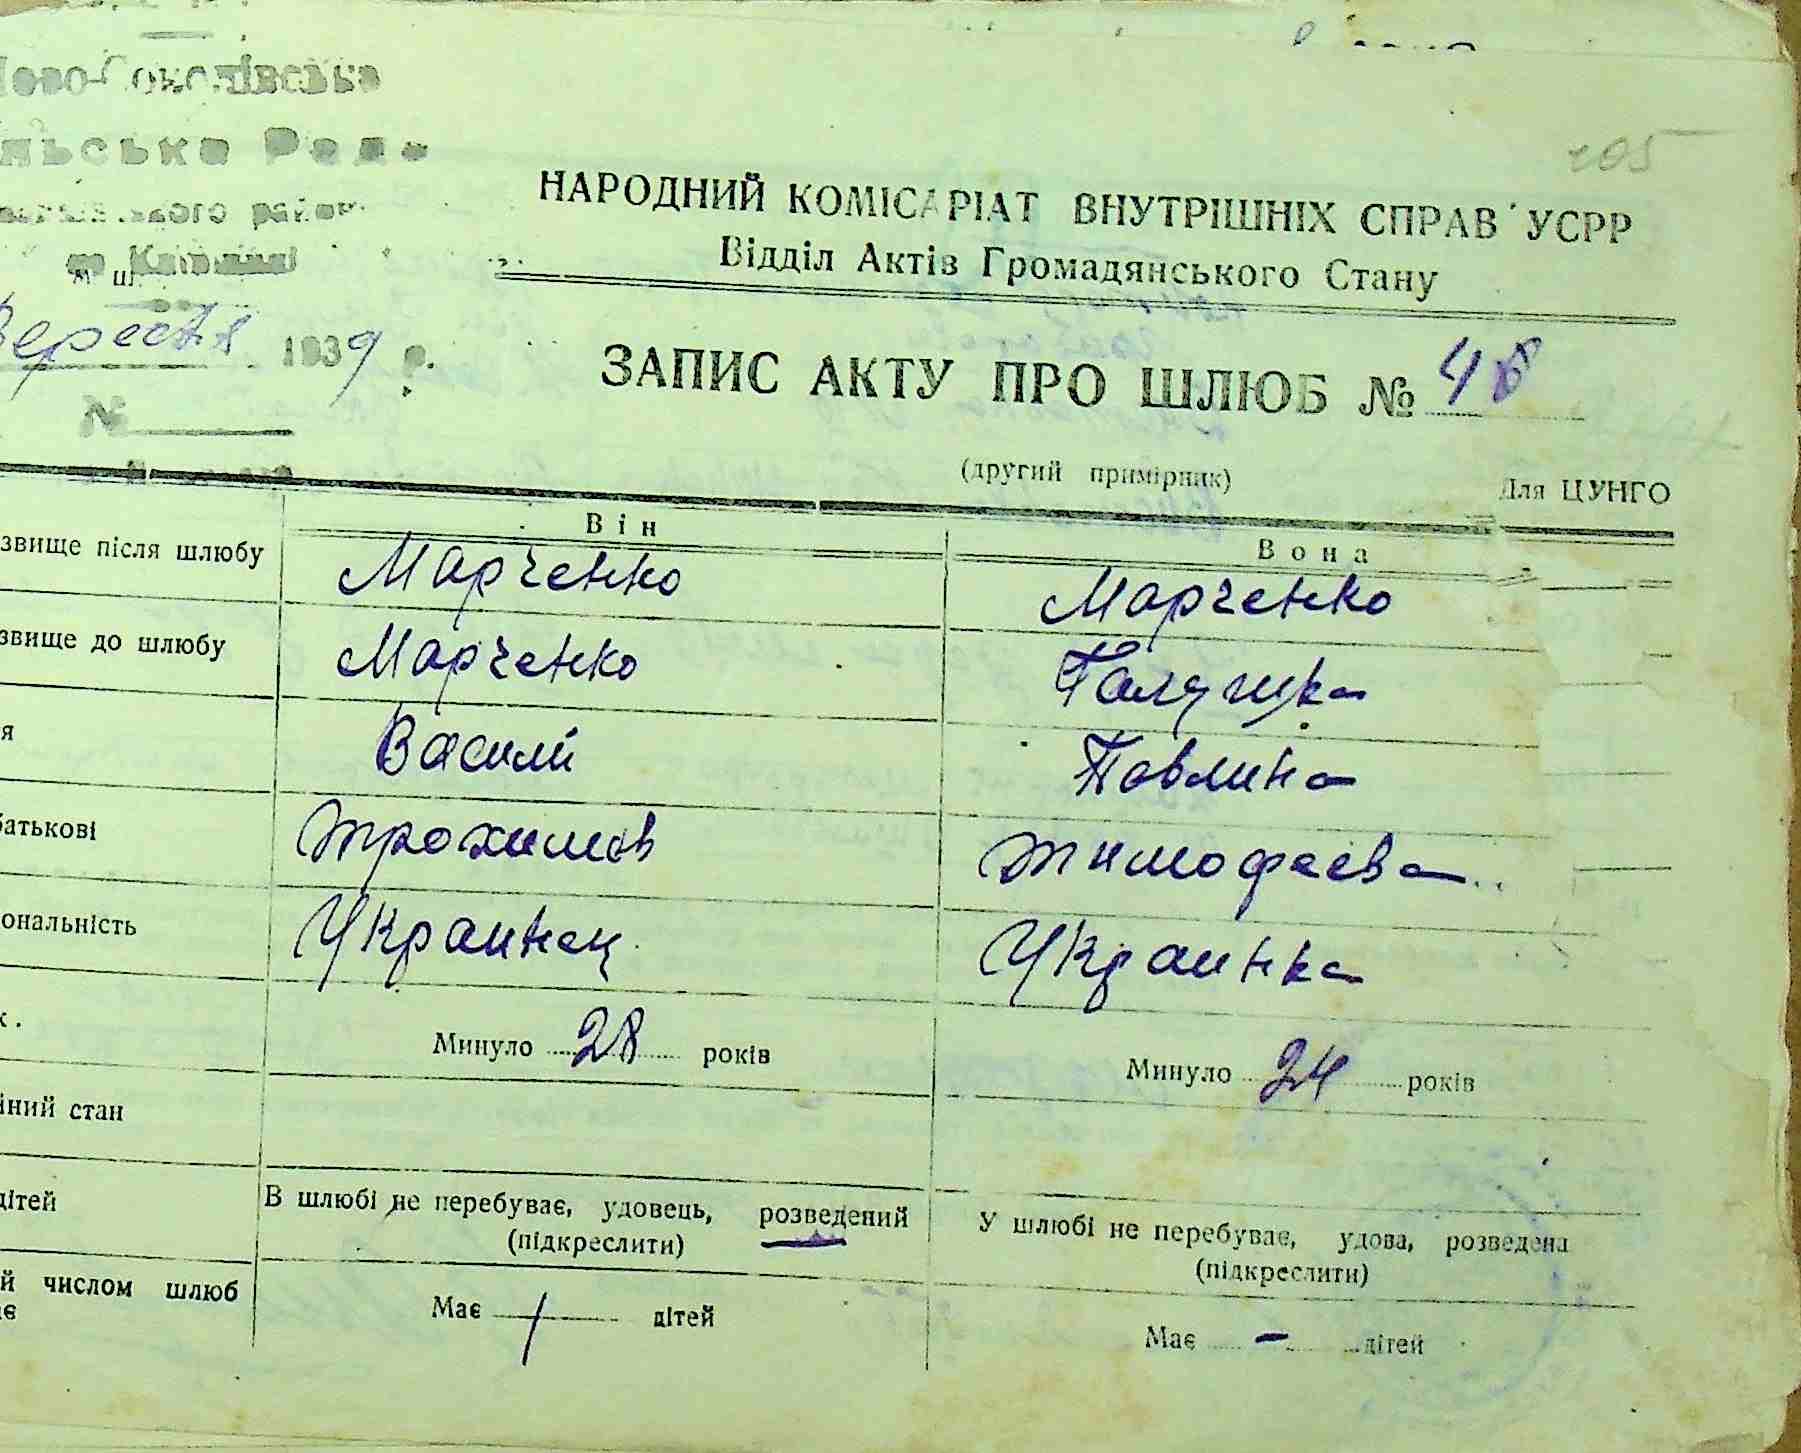 льська Рада
ого район
105
НАРОДНИЙ КОМІСАРІАТ ВНУТРІШНІХ СПРАВ УСРР
Відділ Актів Громадянського Стану
Вересня 1939 р.
ЗАПИС АКТУ ПРО ШЛЮБ № 48
№
(другий примірник) Для ЦУНГО
Він Вона
звище після шлюбу Марченко Марченко
звище до шлюбу Марченко Галушка
я Василй Павлина
батькові Трохимов Тимофеева
ональність Украинец Украинка
к. Минуло 28 років Минуло 24 років
йний стан
дітей В шлюбі не перебуває, удовець, розведений У шлюбі не перебуває, удова, розведена
(підкреслити) (підкреслити)
й числом шлюб Має 1 дітей Має – дітей